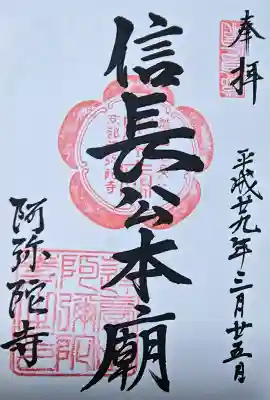 奉拝
平成廿九年三月廿五日
信長公本廟
阿弥陀寺